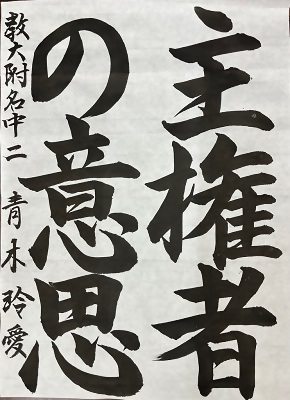 主権者
の意思
教大附名中二 青木玲愛